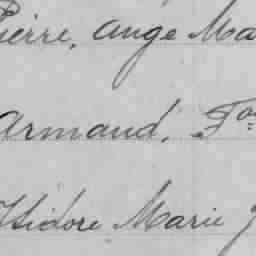 Pierre, Ange Ma
Armand, Fo
Isidore Marie